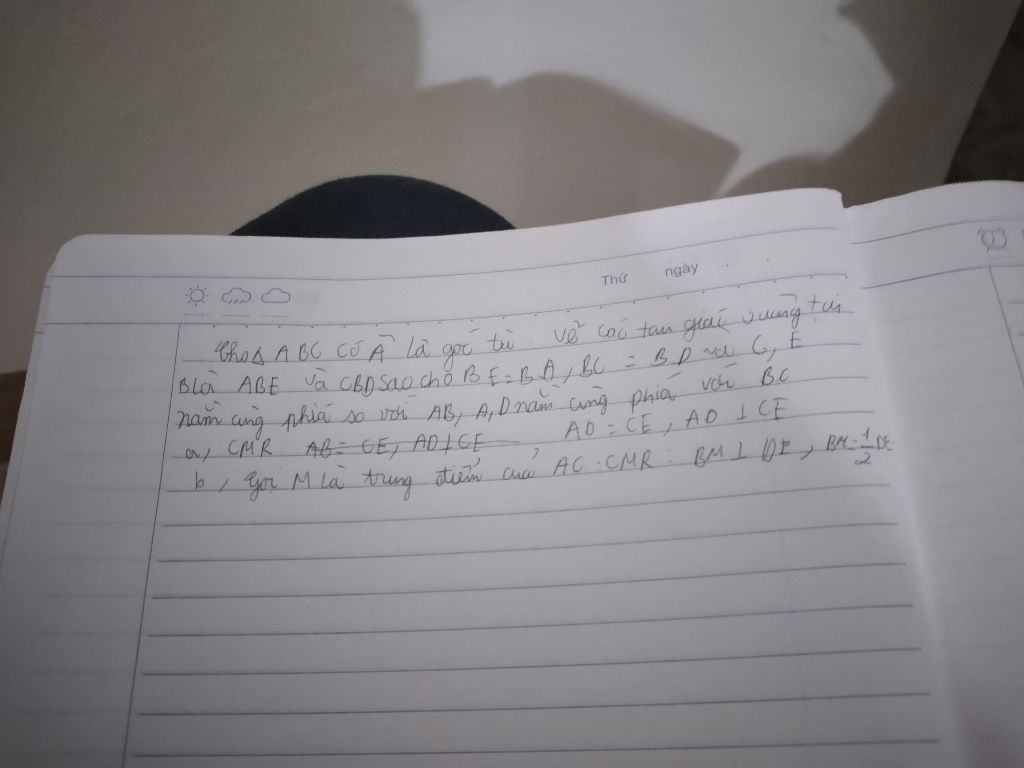 Thứ ngày
Cho Δ ABC có Â là góc tù. Vẽ các tam giác vuông tại
B là ABE và CBD sao cho BE = BA, BC = BD và C, E
nằm cùng phía so với AB, A, D nằm cùng phía với BC
a, CMR: AB = CE, AD ⊥ CE AD = CE, AD ⊥ CE
b, Gọi M là trung điểm của AC. CMR: BM ⊥ DE, BM = 1/2 DE